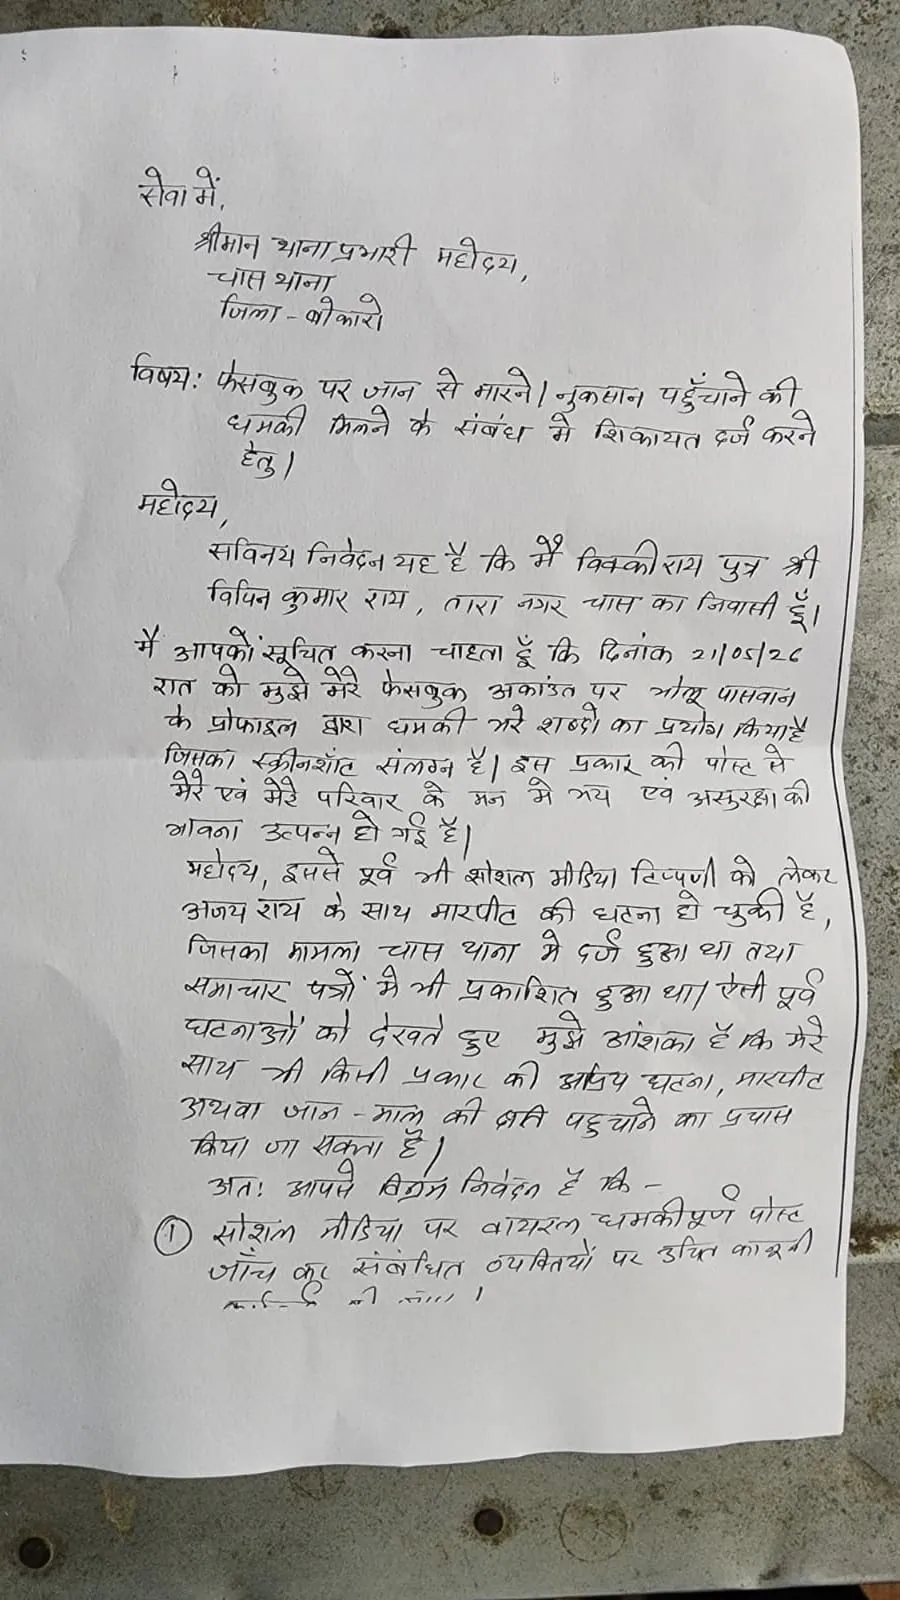 सेवा में,
श्रीमान थाना प्रभारी महोदय,
चास थाना
जिला - बोकारो
विषय: फेसबुक पर जान से मारने/नुकसान पहुँचाने की
धमकी मिलने के संबंध मे शिकायत दर्ज करने
हेतु।
महोदय,
सविनय निवेदन यह है कि मैं विक्की राय पुत्र श्री
विपिन कुमार राय, तारा नगर चास का निवासी हूँ।
मै आपको सूचित करना चाहता हूँ कि दिनांक 21/05/26
रात को मुझे मेरे फेसबुक अकांउत पर भोलू पासवान
के प्रोफाइल द्वारा धमकी भरे शब्दो का प्रयोग किया है
जिसका स्क्रीनशॉट संलग्न है। इस प्रकार की पोस्ट से
मेरे एवं मेरे परिवार के मन मे भय एवं असुरक्षा की
भावना उत्पन्न हो गई है।
महोदय, इससे पूर्व भी शोशल मीडिया टिप्पणी को लेकर
अजय राय के साथ मारपीट की घटना हो चुकी है,
जिसका मामला चास थाना मे दर्ज हुआ था तथा
समाचार पत्रों मे भी प्रकाशित हुआ था। ऐसी पूर्व
घटनाओं को देखते हुए मुझे आंशका है कि मेरे
साथ भी किसी प्रकार की अप्रिय घटना, मारपीट
अथवा जान - माल की क्षति पहुचाने का प्रयास
किया जा सकता है।
अत: आपसे विनम्र निवेदन है कि -
① सोशल मीडिया पर वायरल धमकीपूर्ण पोस्ट
जाँच कर संबंधित व्यक्तियों पर उचित कानूनी